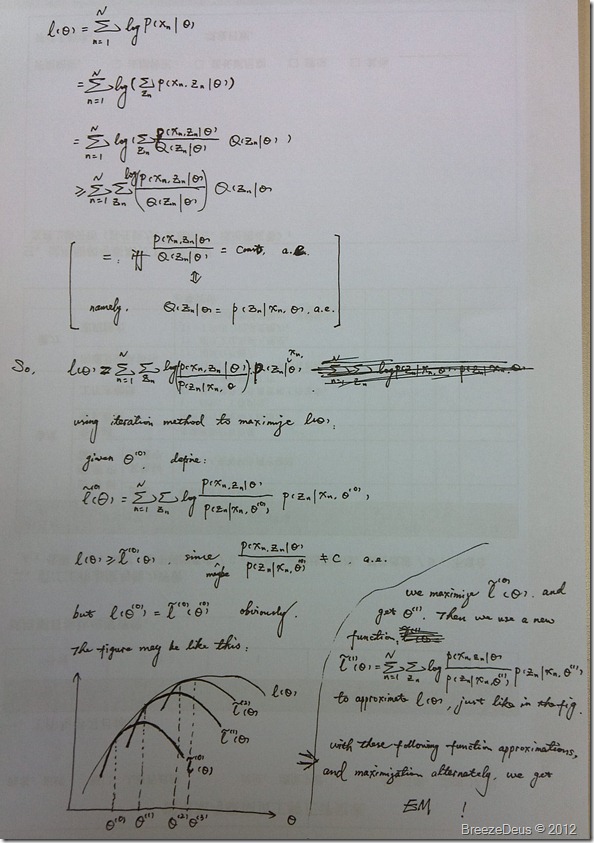 l(θ) = Σ_{n=1}^{N} log p(x_n|θ)
= Σ_{n=1}^{N} log(Σ_{z_n} p(x_n, z_n|θ))
= Σ_{n=1}^{N} log(Σ_{z_n} p(x_n, z_n|θ) / Q(z_n|θ) Q(z_n|θ))
≥ Σ_{n=1}^{N} Σ_{z_n} log(p(x_n, z_n|θ) / Q(z_n|θ)) Q(z_n|θ)
=: iff p(x_n, z_n|θ) / Q(z_n|θ) = const, a.e.
⇕
namely. Q(z_n|θ) = p(z_n|x_n, θ), a.e.
So, l(θ) = Σ_{n=1}^{N} Σ_{z_n} log(p(x_n, z_n|θ) / p(z_n|x_n, θ)) · p(z_n|x_n, θ)
using iteration method to maximize l(θ):
given θ^(0), define:
l̃^(0)(θ) = Σ_{n=1}^{N} Σ_{z_n} log p(x_n, z_n|θ) / p(z_n|x_n, θ^(0)) p(z_n|x_n, θ^(0)),
l(θ) ≥ l̃^(0)(θ), since p(x_n, z_n|θ) / p(z_n|x_n, θ^(0)) maybe ≠ C. a.e.
but l(θ^(0)) = l̃^(0)(θ^(0)) obviously.
The figure may be like this:
l(θ)
l̃^(2)(θ)
l̃^(1)(θ)
l̃^(0)(θ)
θ^(0) θ^(1) θ^(2) θ^(3) θ
we maximize l̃^(0)(θ). and
get θ^(1). Then we use a new
function,
l̃^(1)(θ) = Σ_{n=1}^{N} Σ_{z_n} log p(x_n, z_n|θ) / p(z_n|x_n, θ^(1)) p(z_n|x_n, θ^(1)),
to approximate l(θ), just like in the fig.
with these following function approximations,
and maximization alternately, we get
EM !
BreezeDeus © 2012